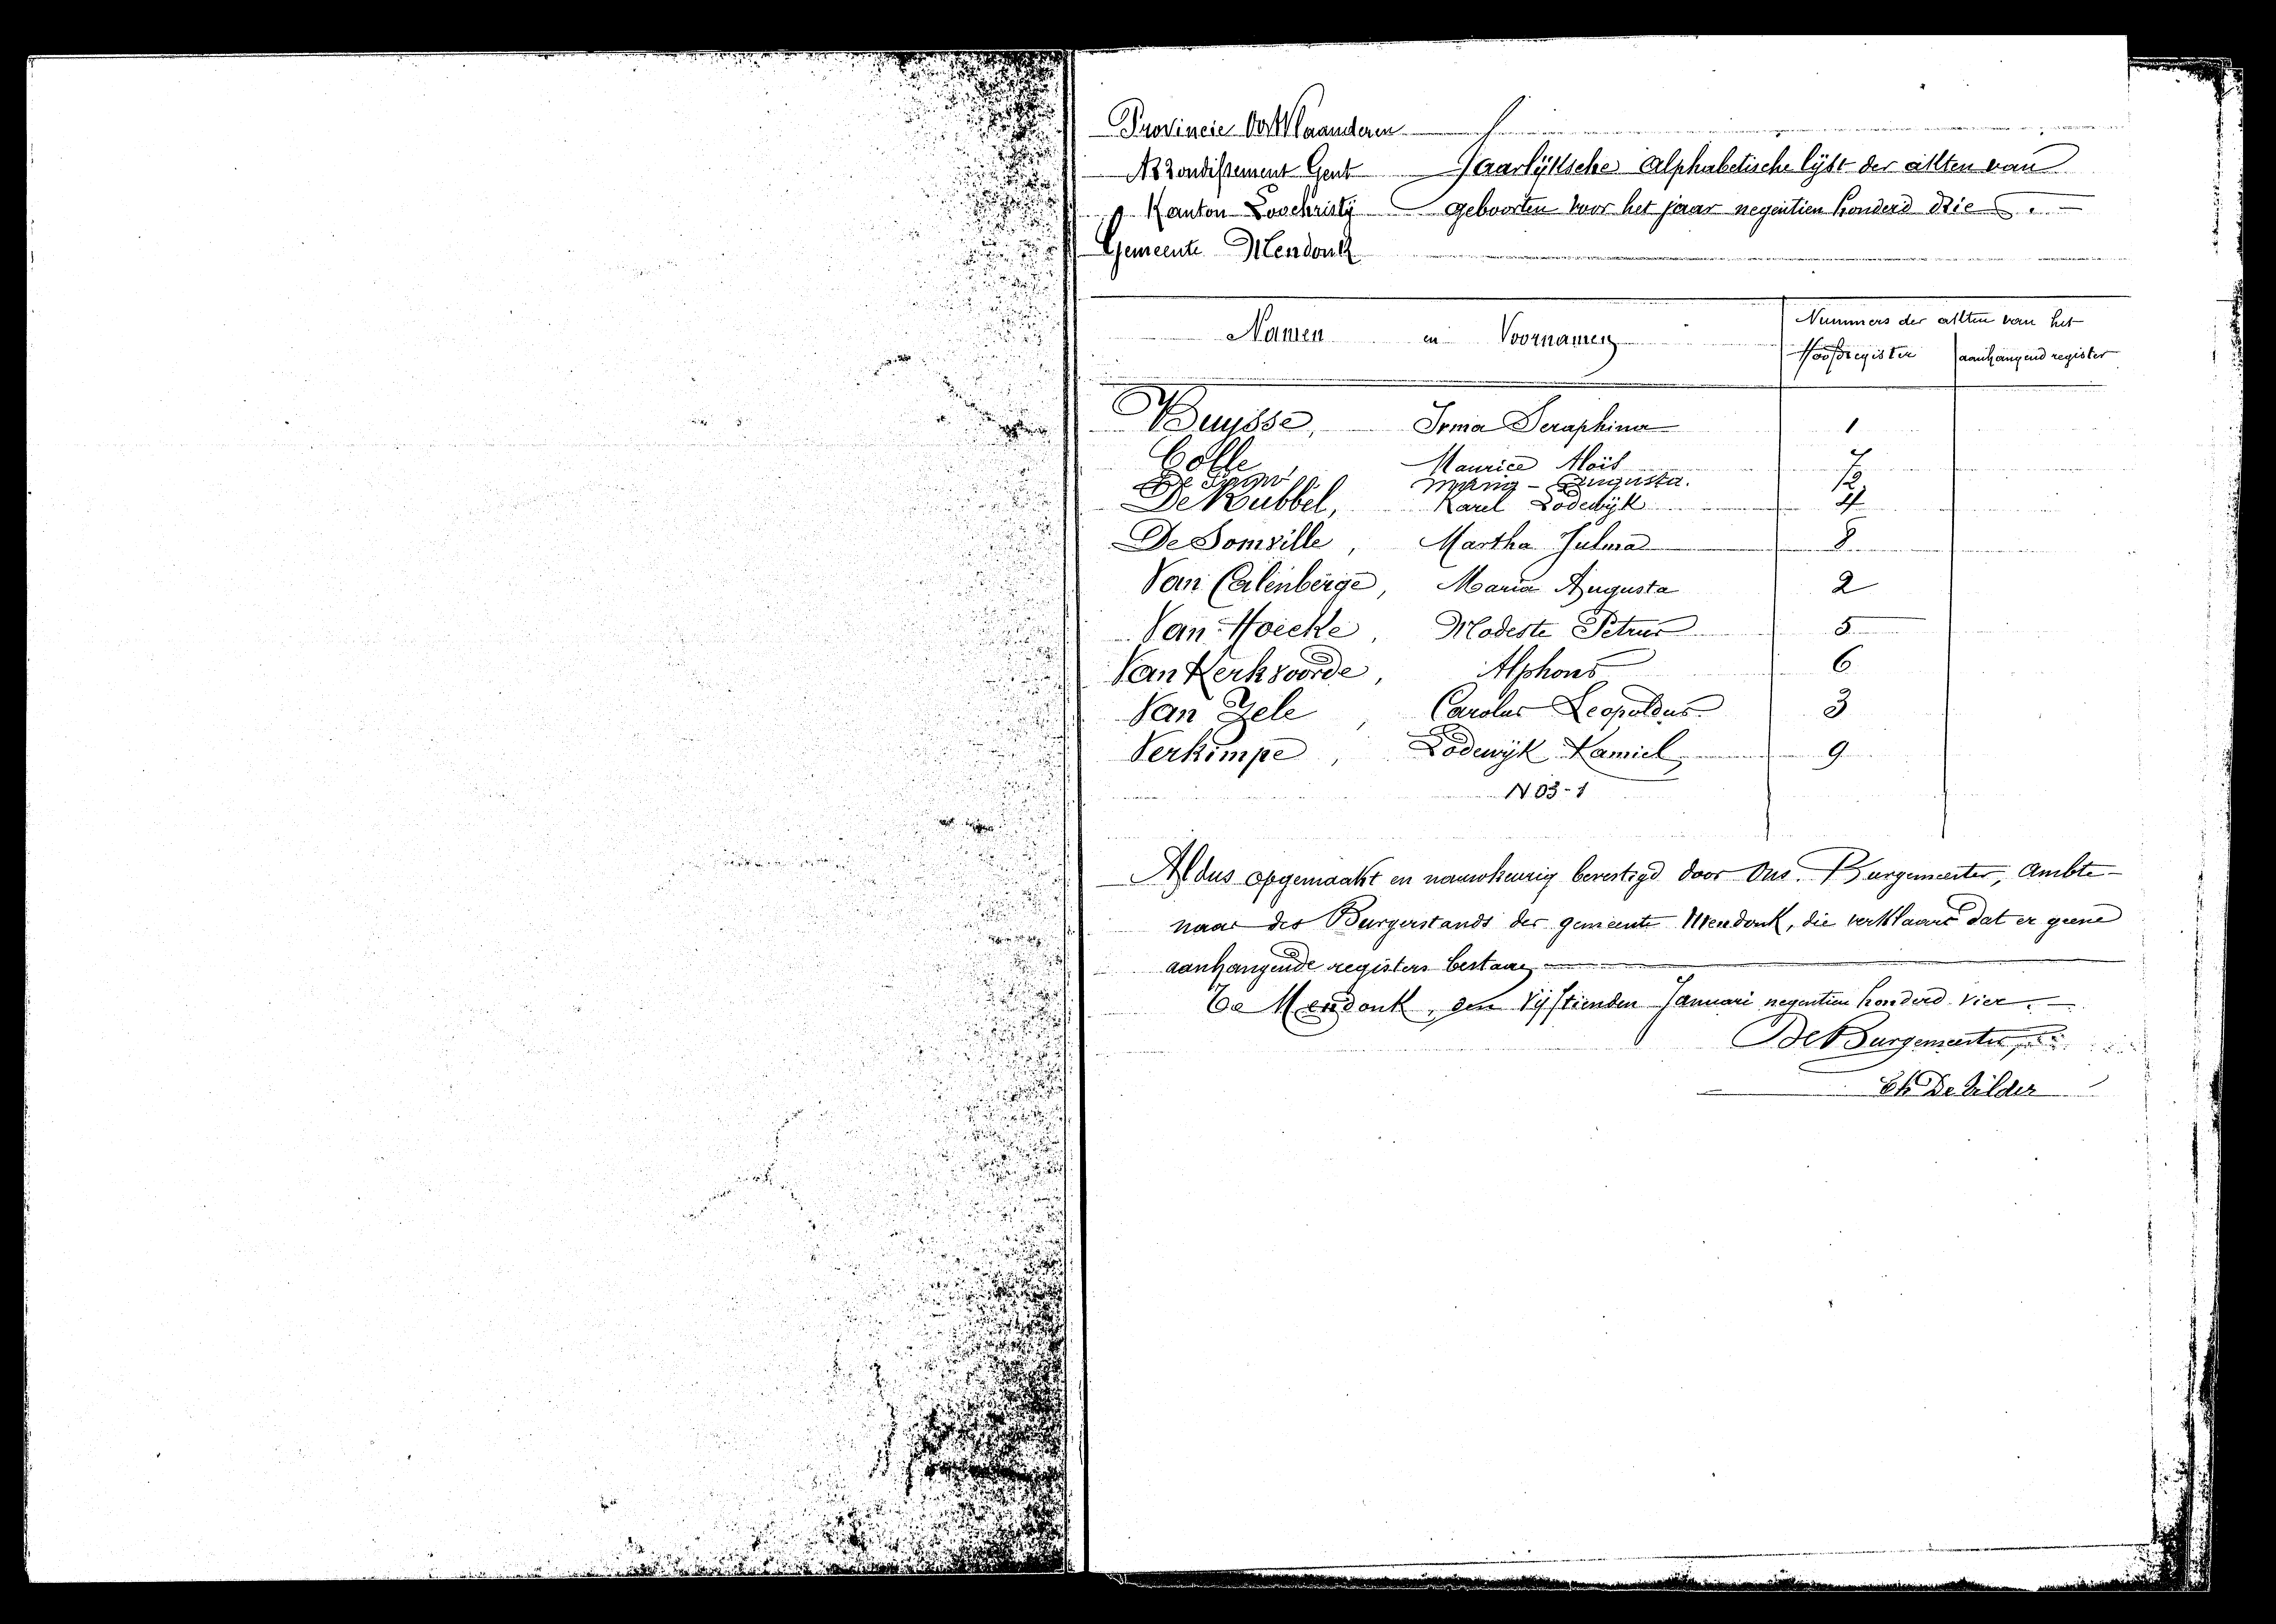 Provincie Oost Vlaanderen
Arrondissement Gent Jaarlijksche Alphabetische lijst der akten van
Kanton Loochristij geboorten voor het jaar negentien honderd drie.
Gemeente Mendonk
Namen en Voornamen Nummers der akten van het
Hoofdregister aanhangend register
Buysse, Irma Seraphina 1
Colle, Maurice Aloïs 7
De Maria - Augusta.
De Kubbel, Karel Lodewijk 4
De Somville, Martha Julma 8
Van Calenberge, Maria Augusta 2
Van Hoecke, Modeste Petrus 5
Van Kerkvoorde, Alphons 6
Van Zele, Carolus Leopoldus 3
Verkimpe, Lodewijk Kamiel 9
N 03-1
Aldus opgemaakt en nauwkeurig bevestigd door Ons. Burgemeester, Ambte-
naar des Burgerstands der gemeente Mendonk, die verklaart dat er geene
aanhangende registers bestaan
Te Mendonk, den Vijftienden Januari negentien honderd vier.
De Burgemeester,
De Vilder